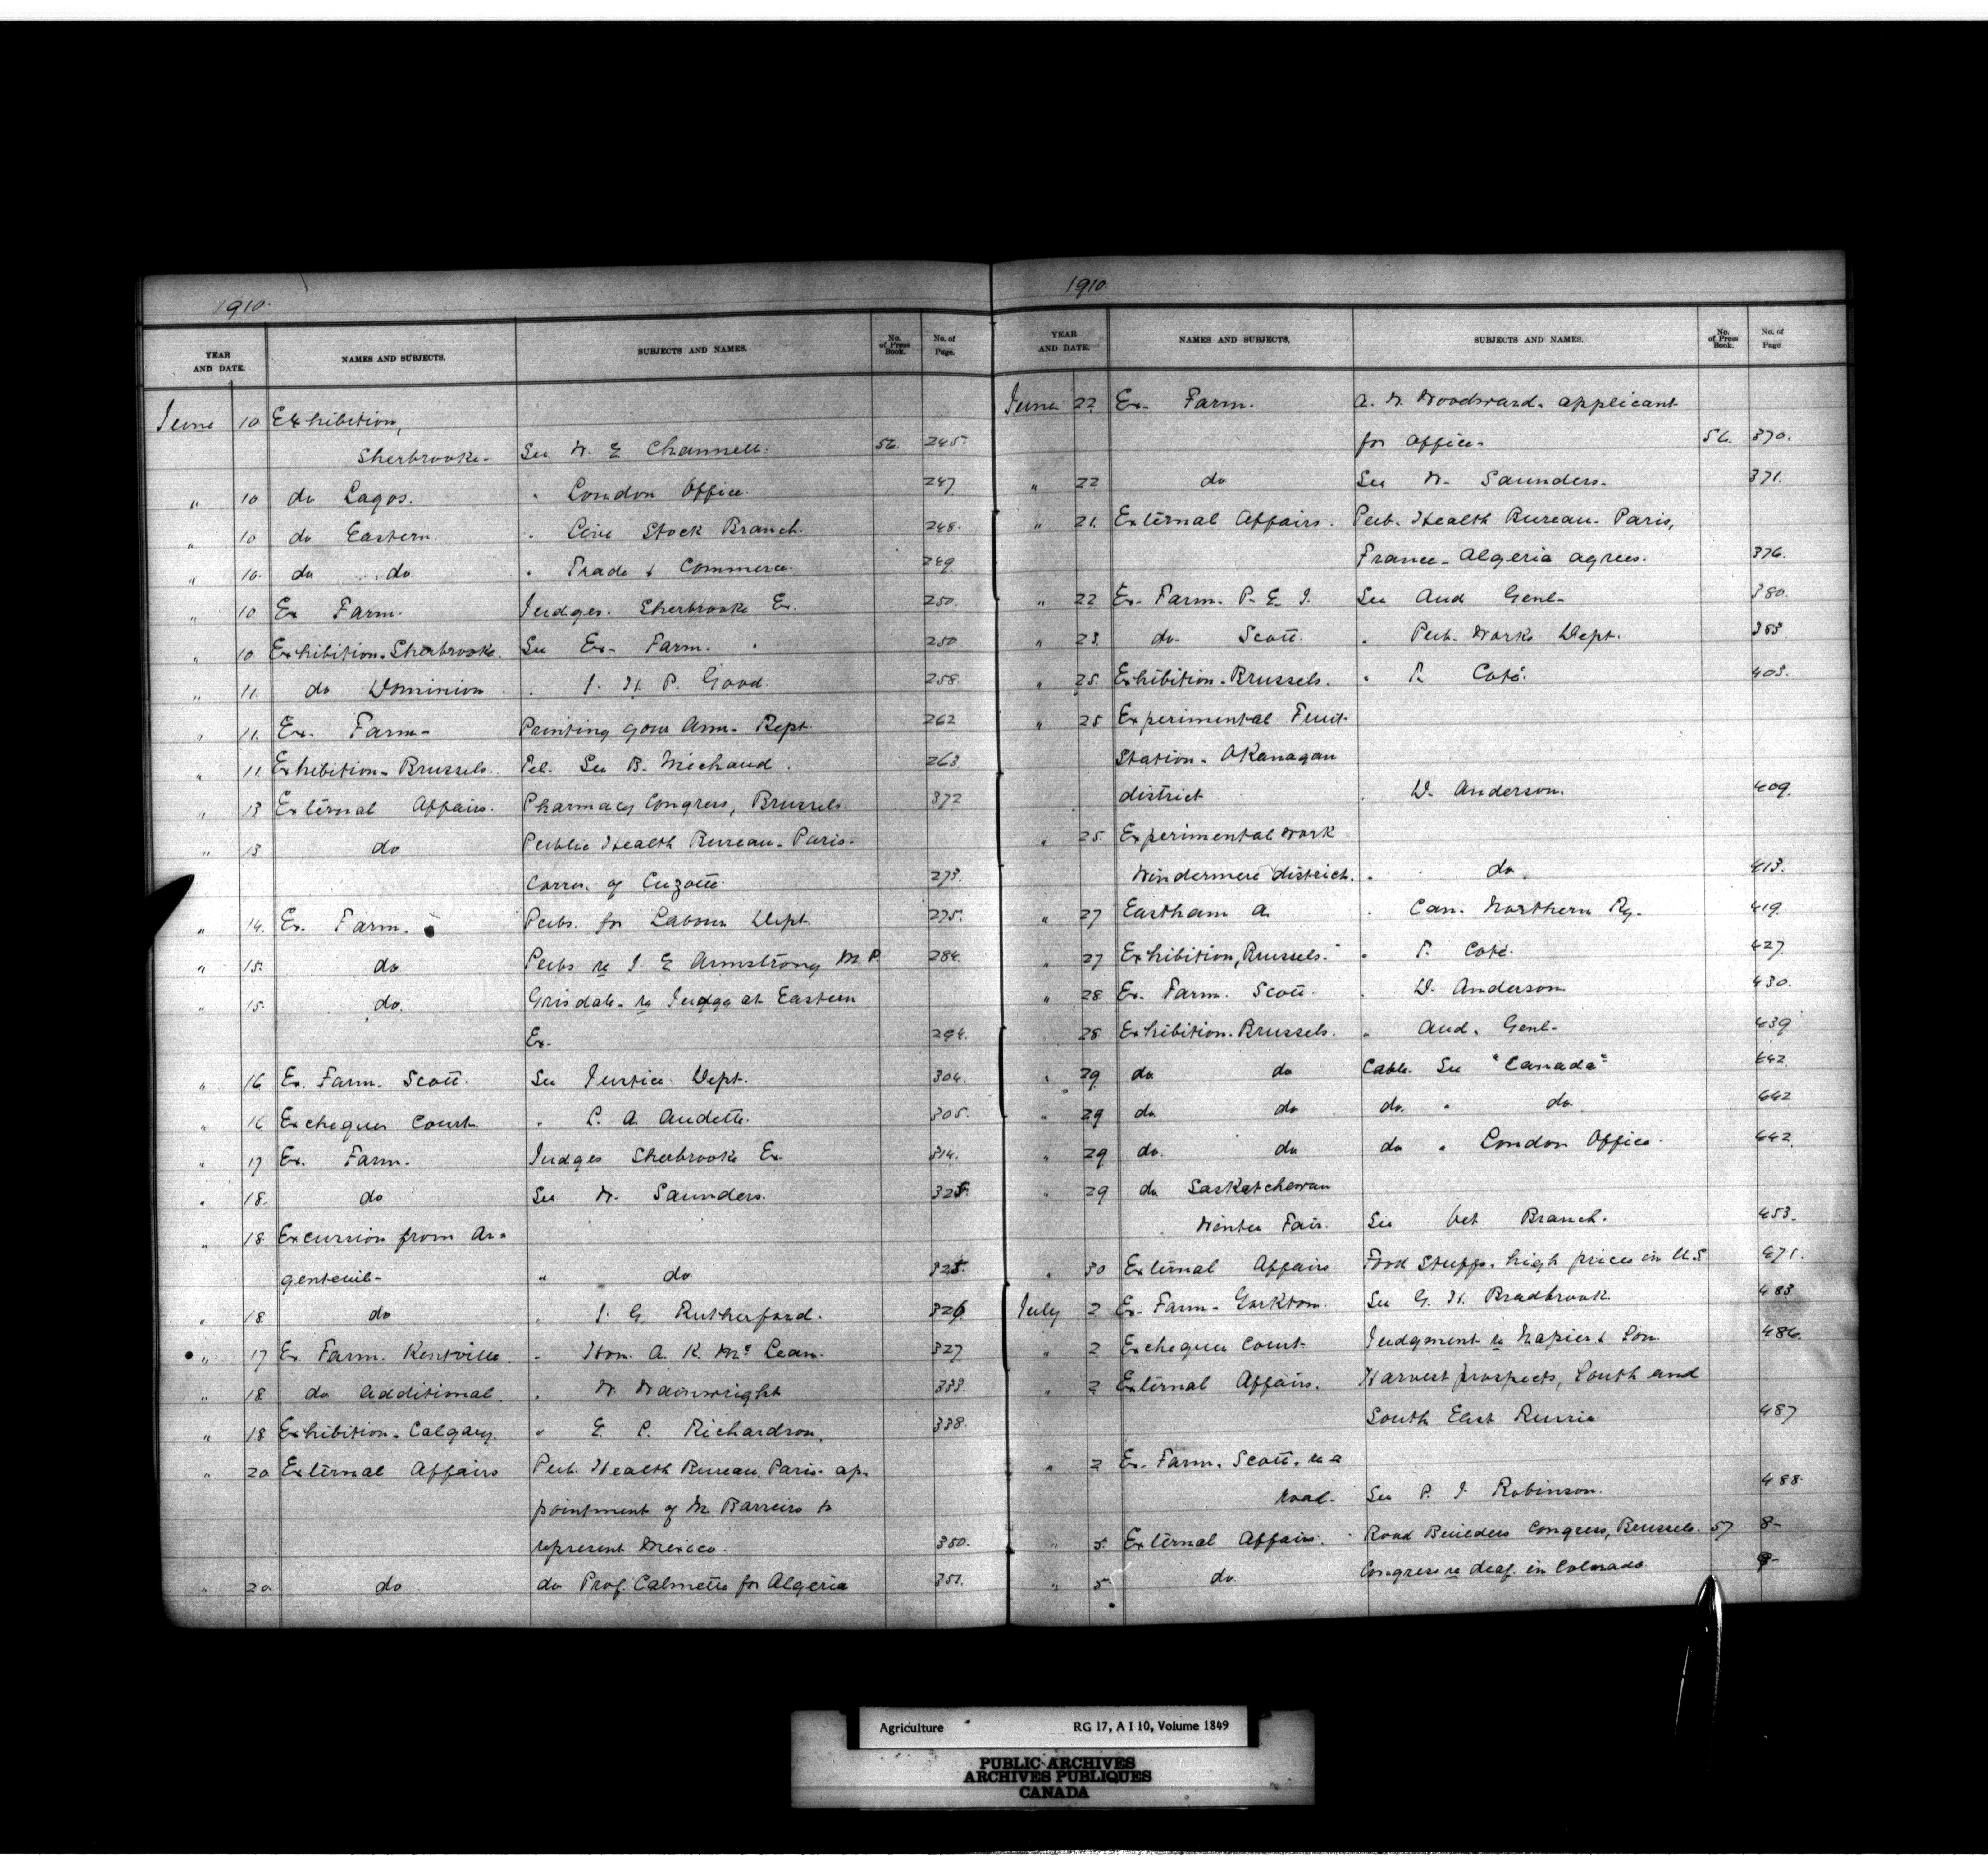 1910.
YEAR AND DATE. NAMES AND SUBJECTS. SUBJECTS AND NAMES. No. of Press Book. No. of Page.
June 10 Exhibition,
Sherbrooke- See W. E. Channell. 56. 245.
" 10 do Lagos. " London Office. 247
" 10 do Eastern. " Live Stock Branch. 248.
" 10. do do " Trade & Commerce. 249
" 10 Ex Farm. Judges. Sherbrooke Ex. 250.
" 10 Exhibition. Sherbrooke. See Ex- Farm. 250
" 11. do Dominion " J. H. P. Good. 258.
" 11. Ex- Farm- Printing your Ann. Rept. 262
" 11 Exhibition- Brussels. Tel. See B. Michaud. 263.
" 13 External Affairs. Pharmacy Congress, Brussels. 372
" 13 do Public Health Bureau- Paris-
Corrn. of Cuzotte. 273.
" 14. Ex. Farm. Pubs. for Labour Dept. 275.
" 15. do Pubs re J. E Armstrong M.P. 284.
" 15. do. Grisdale- re Judge at Eastern
Ex- 294.
" 16 Ex. Farm. Scott. See Justice Dept. 304.
" 16 Exchequer Court. " L. A. Audette. 305.
" 17 Ex. Farm. Judges Sherbrooke Ex 314.
" 18. do See W. Saunders. 325.
" 18 Excursion from Ar=
genteuil- " do 325.
" 18 do " J. G. Rutherford. 326
" 17 Ex Farm. Kentville. " Hon. A. K. McLean. 327
" 18 do Additional " W. Wainwright 333.
" 18 Exhibition- Calgary. " E. L. Richardson. 338.
" 20 External Affairs Pub. Health Bureau, Paris- ap-
pointment of M. Barreiro to
represent Mexico. 350.
" 20 do do Prof. Calmette for Algeria 351.
1910
YEAR AND DATE. NAMES AND SUBJECTS. SUBJECTS AND NAMES. No. of Press Book. No. of Page
June 22 Ex- Farm. A. W. Woodward- applicant
for office- 56. 370.
" 22 do See W. Saunders. 371.
" 21. External Affairs. Pub. Health Bureau- Paris,
France- Algeria agrees. 376.
" 22 Ex- Farm. P. E. I. See Aud Genl- 380.
" 23. do Scott. " Pub. Works Dept. 383
" 25. Exhibition- Brussels. " T. Coté. 403.
" 25 Experimental Fruit
Station- Okanagan
district " D. Anderson. 409.
" 25. Experimental work
Windermere district. " do. 413.
" 27 Eastham A. " Can. Northern Ry. 419.
" 27 Exhibition, Brussels. " T. Coté. 427
" 28 Ex. Farm. Scott. " D. Anderson 430.
28 Exhibition- Brussels. " Aud. Genl- 439
" 29 do do Cable. See "Canada" 442.
" 29 do do do. " do 442
" 29 do. do do " London Office. 442.
" 29 do Saskatchewan
Winter Fair. See Vet Branch. 453.
" 30 External Affairs Food Stuffs- high prices in U.S 471.
July 2 Ex- Farm- Yorkton. See G. H. Bradbrook. 483
" 2 Exchequer Court- Judgment re Napier & Son 486.
" 2 External Affairs. Harvest prospects, South and
South East Russia 487
" 2 Ex- Farm. Scott. re a
road- See P. J. Robinson. 488
" 5. External Affairs. Road Builders Congress, Brussels. 57 8-
" 5 do. Congress re deaf. in Colorado 9-
Agriculture RG 17, A I 10, Volume 1849
PUBLIC ARCHIVES
ARCHIVES PUBLIQUES
CANADA